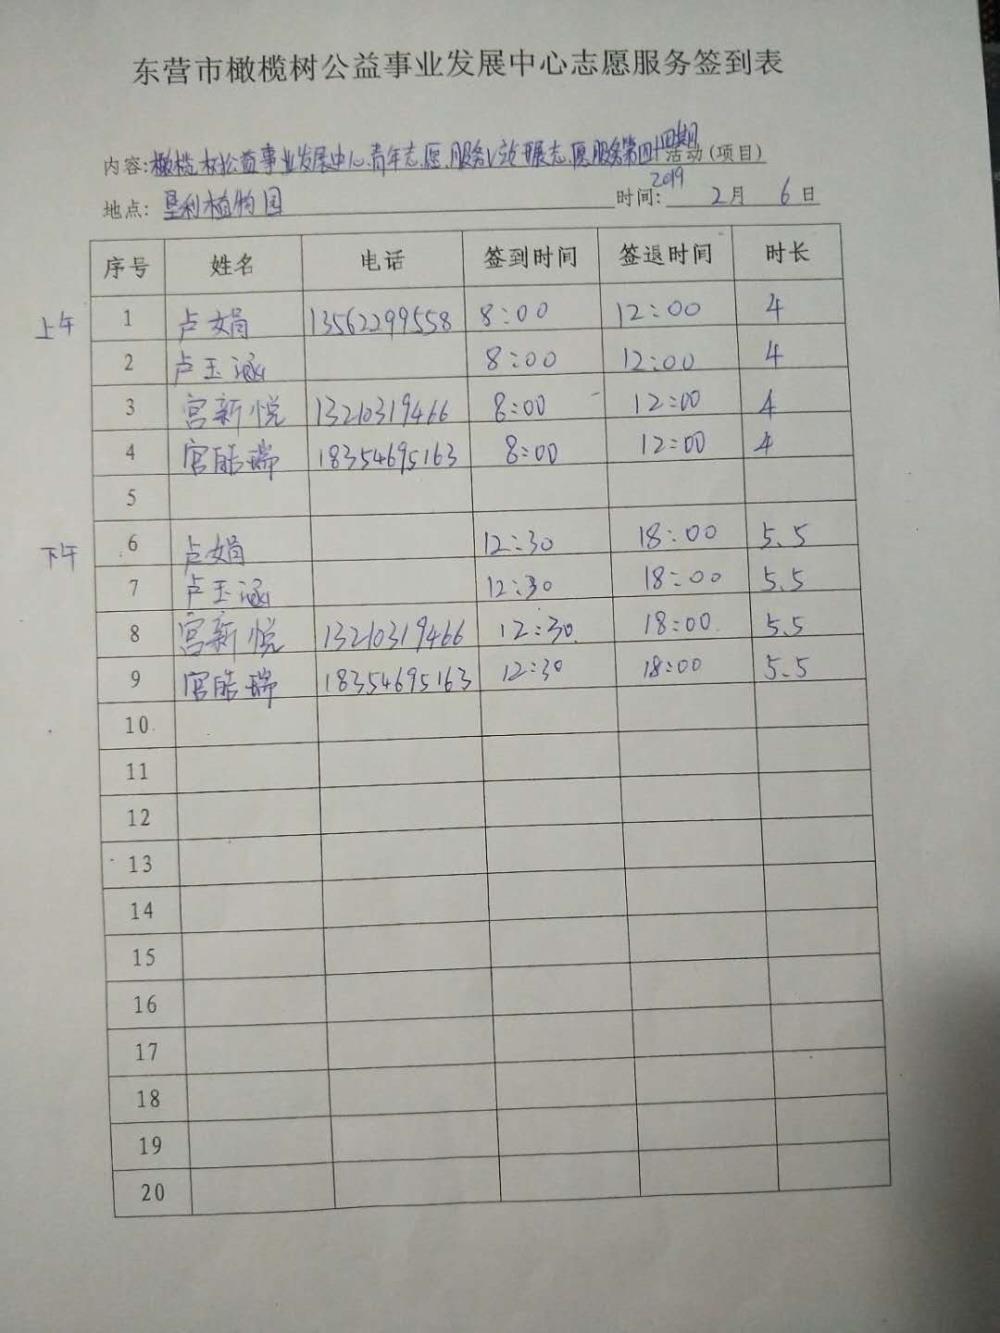 东营市橄榄树公益事业发展中心志愿服务签到表
内容:橄榄树公益事业发展中心青年志愿服务V站开展志愿服务第四十四期活动(项目)
地点:垦利植物园 时间:2019 2月6日
序号 姓名 电话 签到时间 签退时间 时长
上午 1 卢娟 13562299558 8:00 12:00 4
2 卢玉涵 8:00 12:00 4
3 宫新悦 13210319466 8:00 12:00 4
4 官皓瑞 18354695163 8:00 12:00 4
5
下午 6 卢娟 12:30 18:00 5.5
7 卢玉涵 12:30 18:00 5.5
8 宫新悦 13210319466 12:30 18:00 5.5
9 官皓瑞 18354695163 12:30 18:00 5.5
10
11
12
13
14
15
16
17
18
19
20